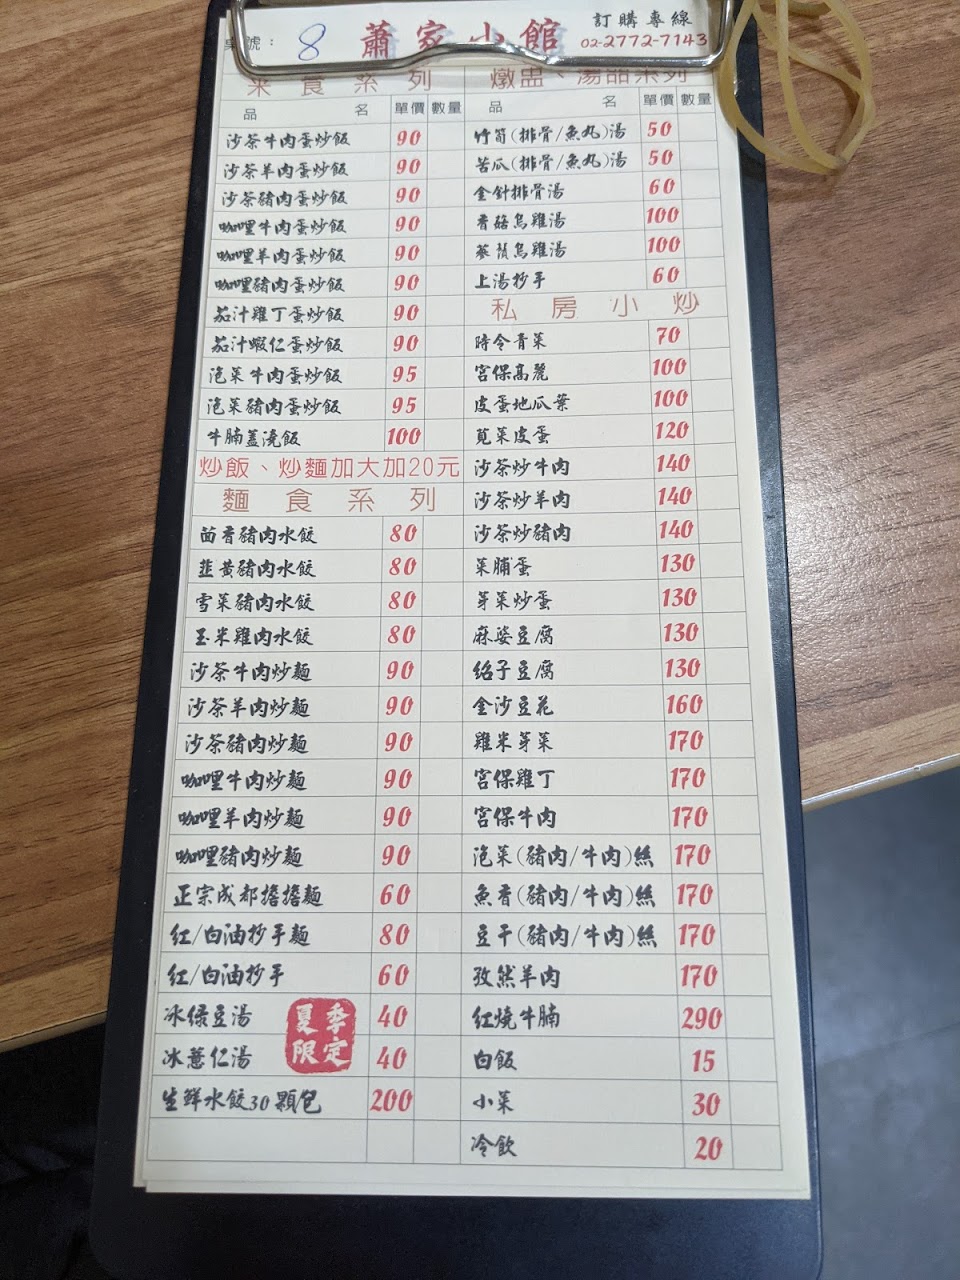 桌號： 8
蕭家小館
訂購專線
02-2772-7143
米食系列
品名 單價 數量
沙茶牛肉蛋炒飯 90
沙茶羊肉蛋炒飯 90
沙茶豬肉蛋炒飯 90
咖哩牛肉蛋炒飯 90
咖哩羊肉蛋炒飯 90
咖哩豬肉蛋炒飯 90
茄汁雞丁蛋炒飯 90
茄汁蝦仁蛋炒飯 90
泡菜牛肉蛋炒飯 95
泡菜豬肉蛋炒飯 95
牛腩蓋澆飯 100
炒飯、炒麵加大加20元
麵食系列
茴香豬肉水餃 80
韮黃豬肉水餃 80
雪菜豬肉水餃 80
玉米雞肉水餃 80
沙茶牛肉炒麵 90
沙茶羊肉炒麵 90
沙茶豬肉炒麵 90
咖哩牛肉炒麵 90
咖哩羊肉炒麵 90
咖哩豬肉炒麵 90
正宗成都擔擔麵 60
紅/白油抄手麵 80
紅/白油抄手 60
冰綠豆湯 40
冰薏仁湯 40
夏季
限定
生鮮水餃30顆/包 200
燉盅、湯品系列
品名 單價 數量
竹筍(排骨/魚丸)湯 50
苦瓜(排骨/魚丸)湯 50
金針排骨湯 60
香菇烏雞湯 100
蔘鬚烏雞湯 100
上湯抄手 60
私房小炒
時令青菜 70
宮保高麗 100
皮蛋地瓜葉 100
莧菜皮蛋 120
沙茶炒牛肉 140
沙茶炒羊肉 140
沙茶炒豬肉 140
菜脯蛋 130
芽菜炒蛋 130
麻婆豆腐 130
紹子豆腐 130
金沙豆花 160
雞米芽菜 170
宮保雞丁 170
宮保牛肉 170
泡菜(豬肉/牛肉)絲 170
魚香(豬肉/牛肉)絲 170
豆干(豬肉/牛肉)絲 170
孜然羊肉 170
紅燒牛腩 290
白飯 15
小菜 30
冷飲 20